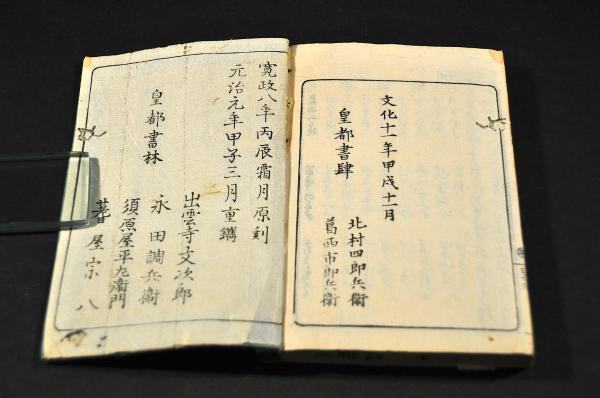 文化十一年甲戌十一月
皇都書肆
北村四郎兵衛
葛西市郎兵衛
寛政八年丙辰霜月原刻
元治元年甲子三月重鐫
皇都書林
出雲寺文次郎
永田調兵衛
須原屋平左衛門
蓍屋宗八